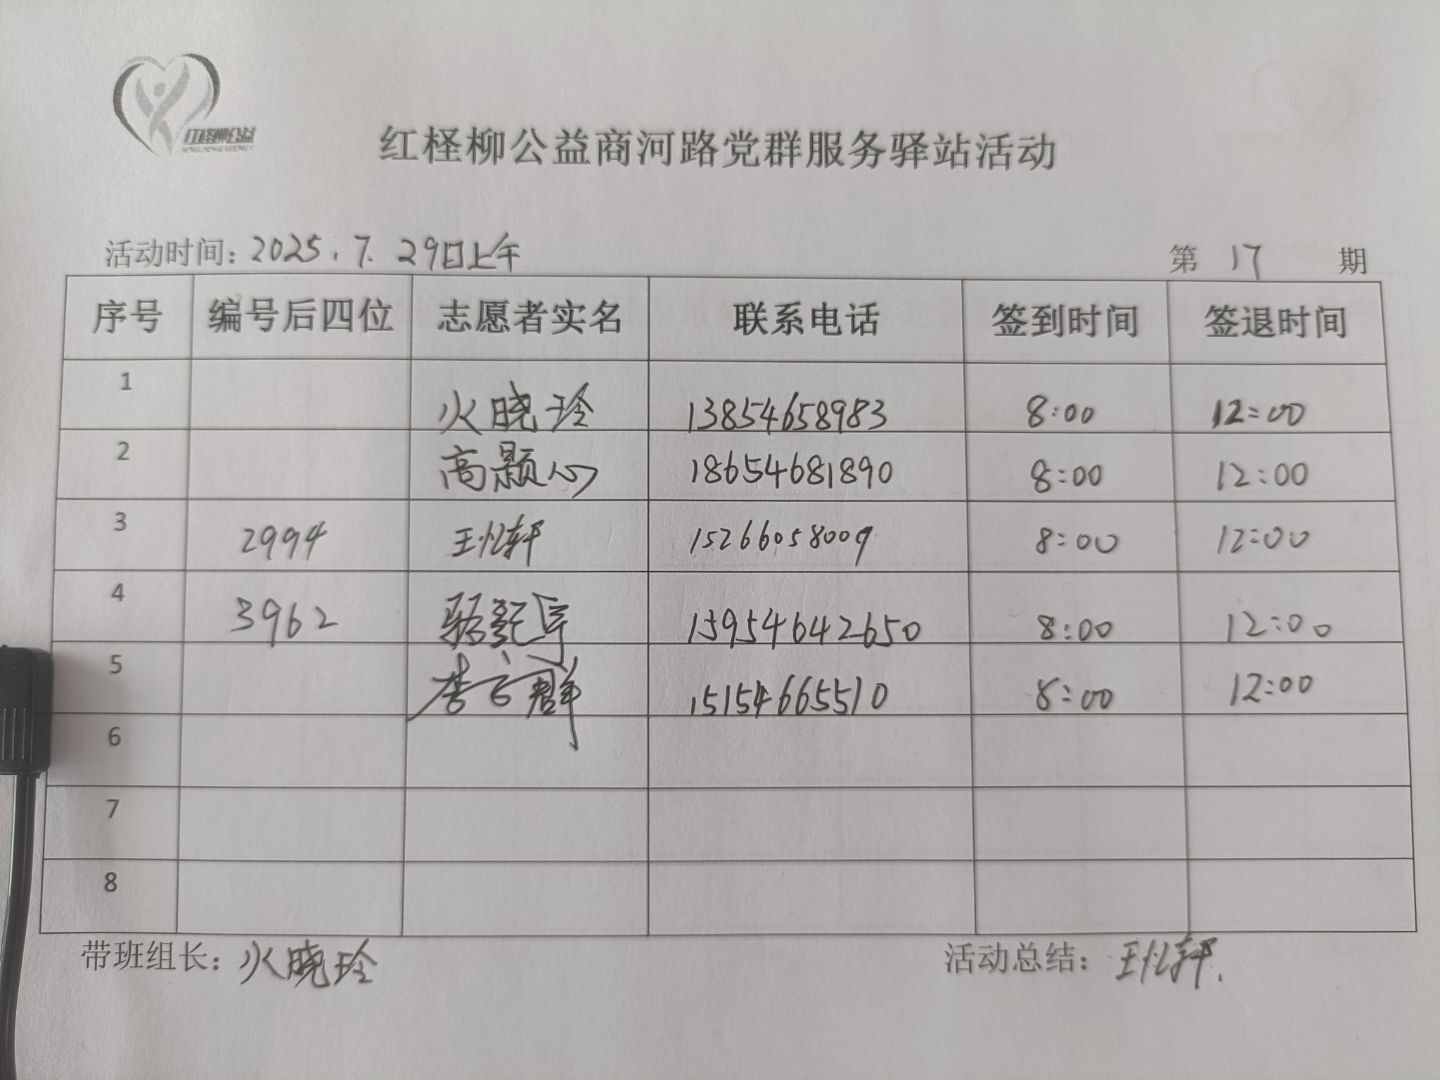 红柽柳公益
红柽柳公益商河路党群服务驿站活动
活动时间：2025.7.29日上午 第 17 期
序号 编号后四位 志愿者实名 联系电话 签到时间 签退时间
1 火晓玲 13854658983 8:00 12:00
2 高颢心 18654681890 8:00 12:00
3 2994 王忆轩 15266058009 8:00 12:00
4 3962 骆 15954642650 8:00 12:00
5 李 群 15154665510 8:00 12:00
6
7
8
带班组长：火晓玲 活动总结：王忆轩.